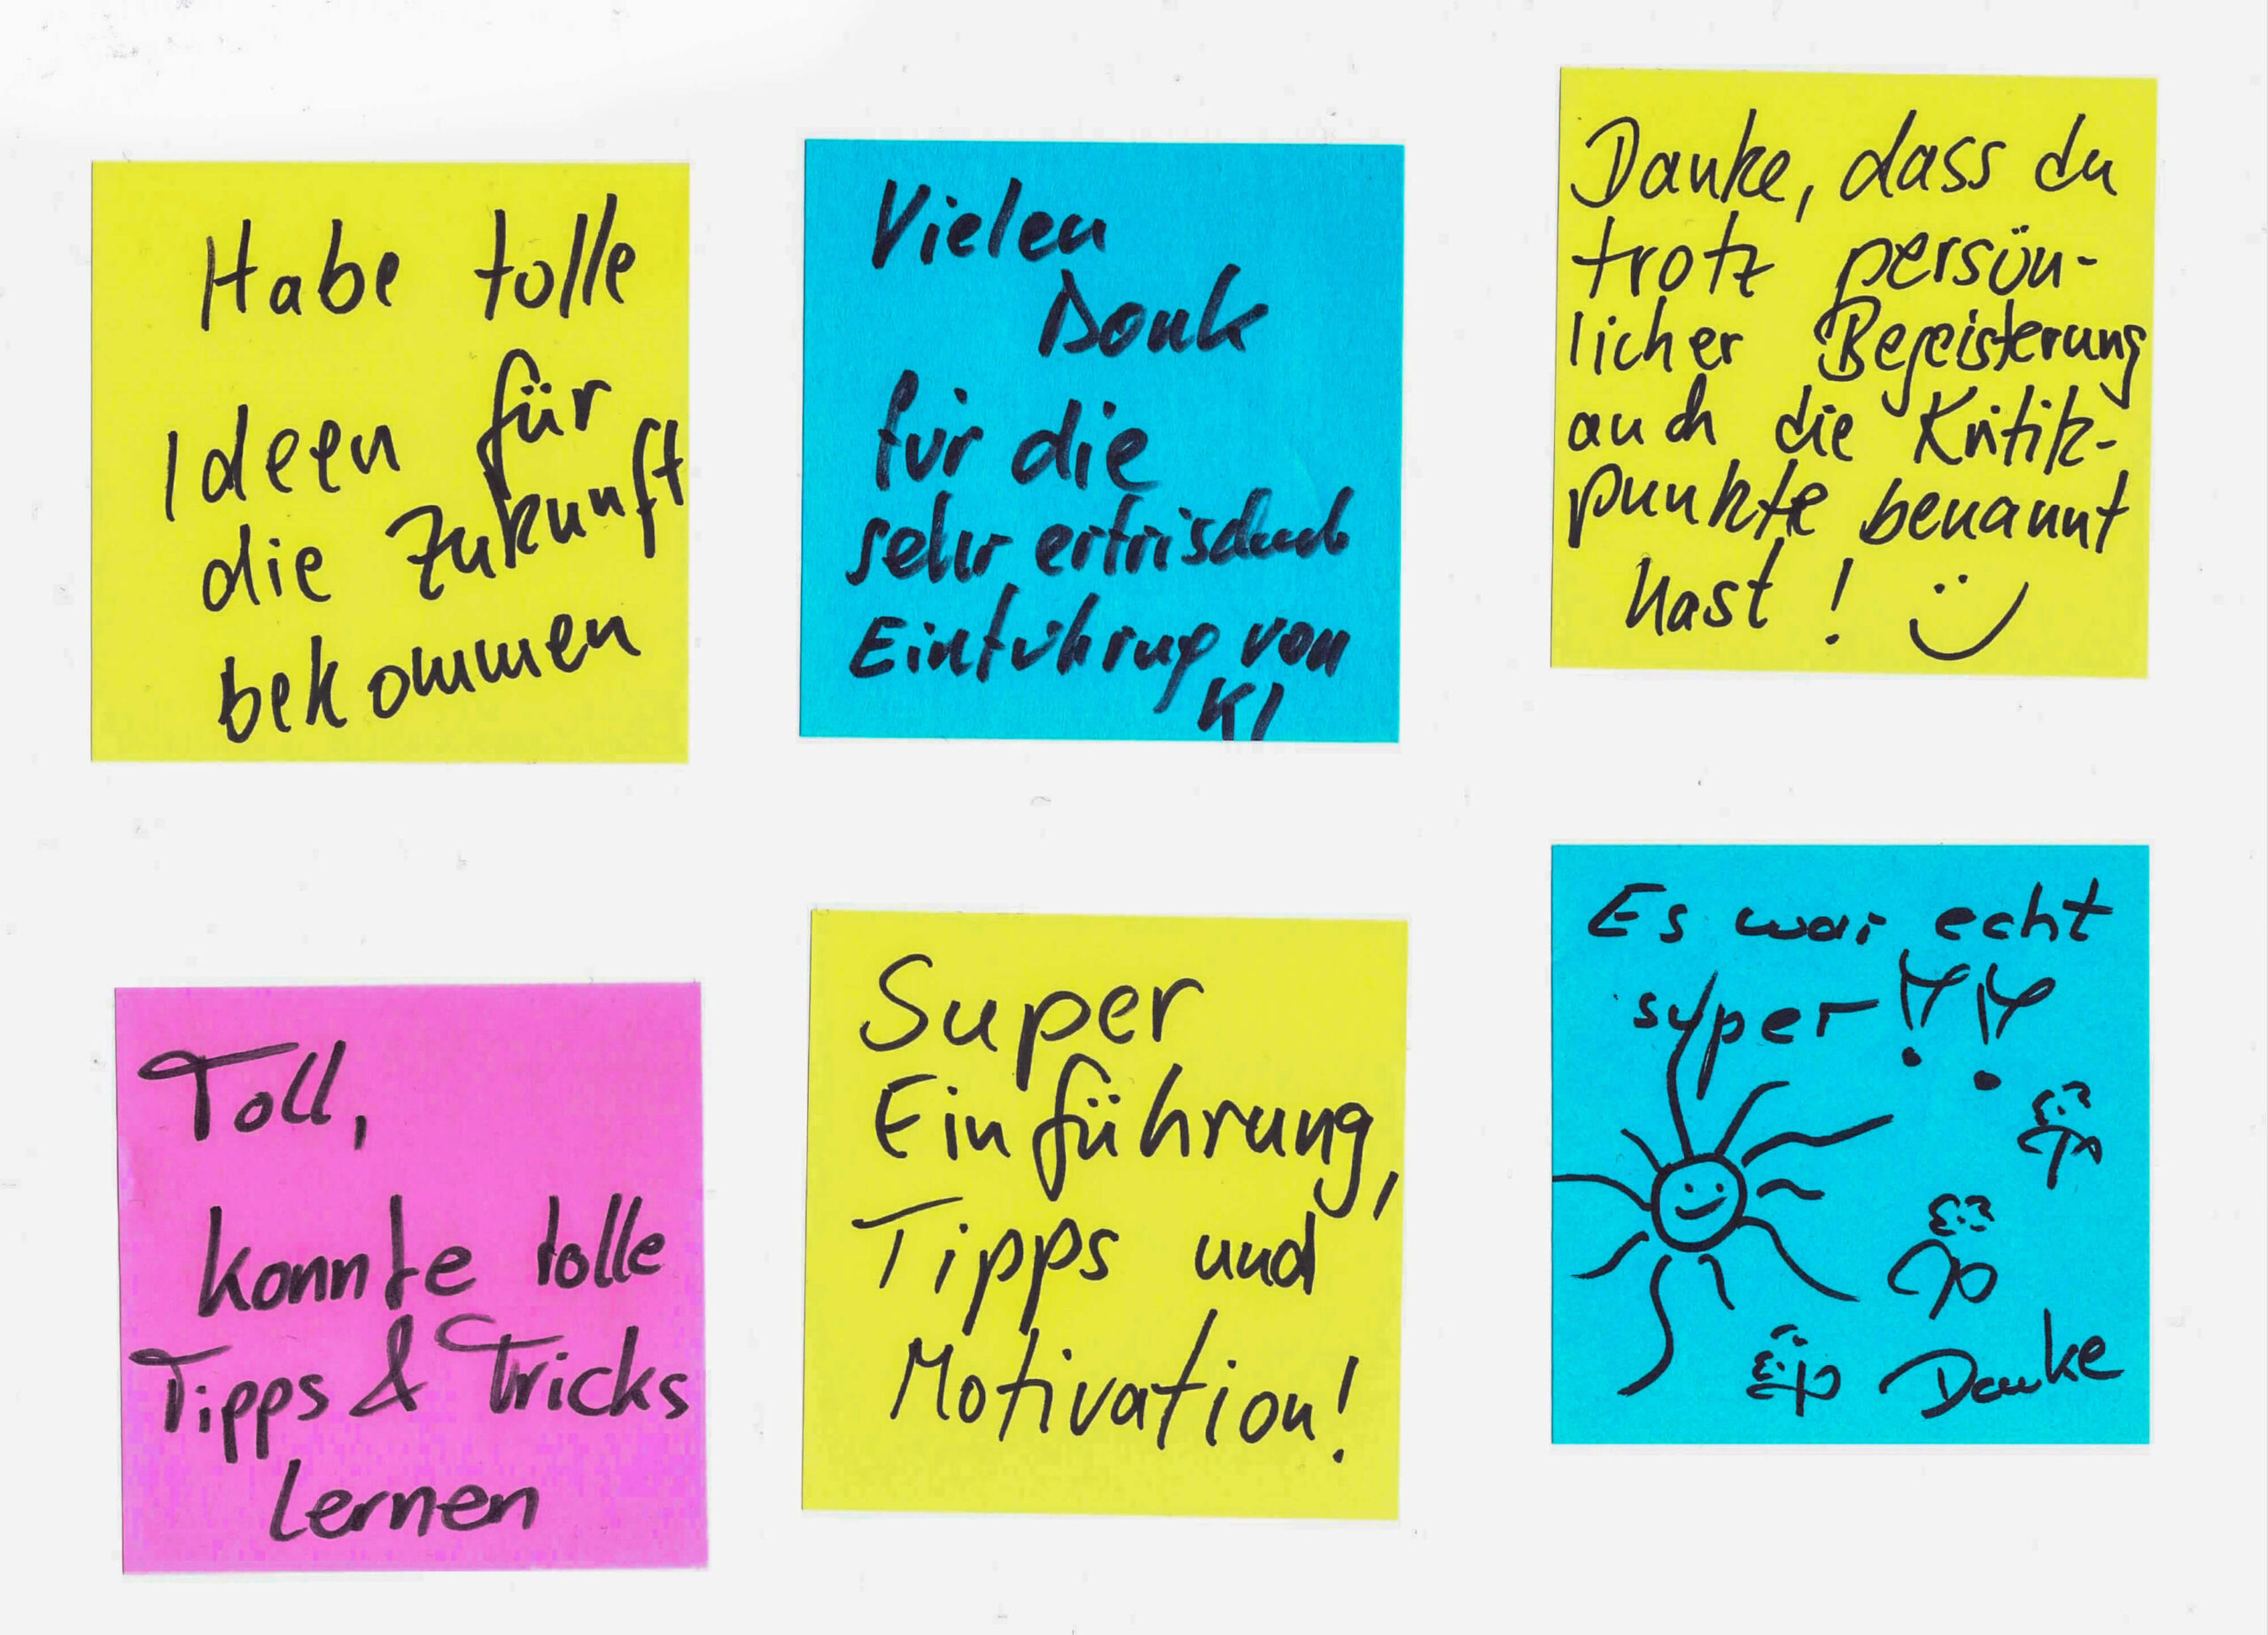 Habe tolle
Ideen für
die Zukunft
bekommen
Vielen
Dank
für die
sehr erfrischende
Einführung von
KI
Danke, dass du
trotz persön-
licher Begeisterung
auch die Kritik-
punkte benannt
hast!
Toll,
konnte tolle
Tipps & Tricks
lernen
Super
Einführung,
Tipps und
Motivation!
Es war echt
super!!
Danke